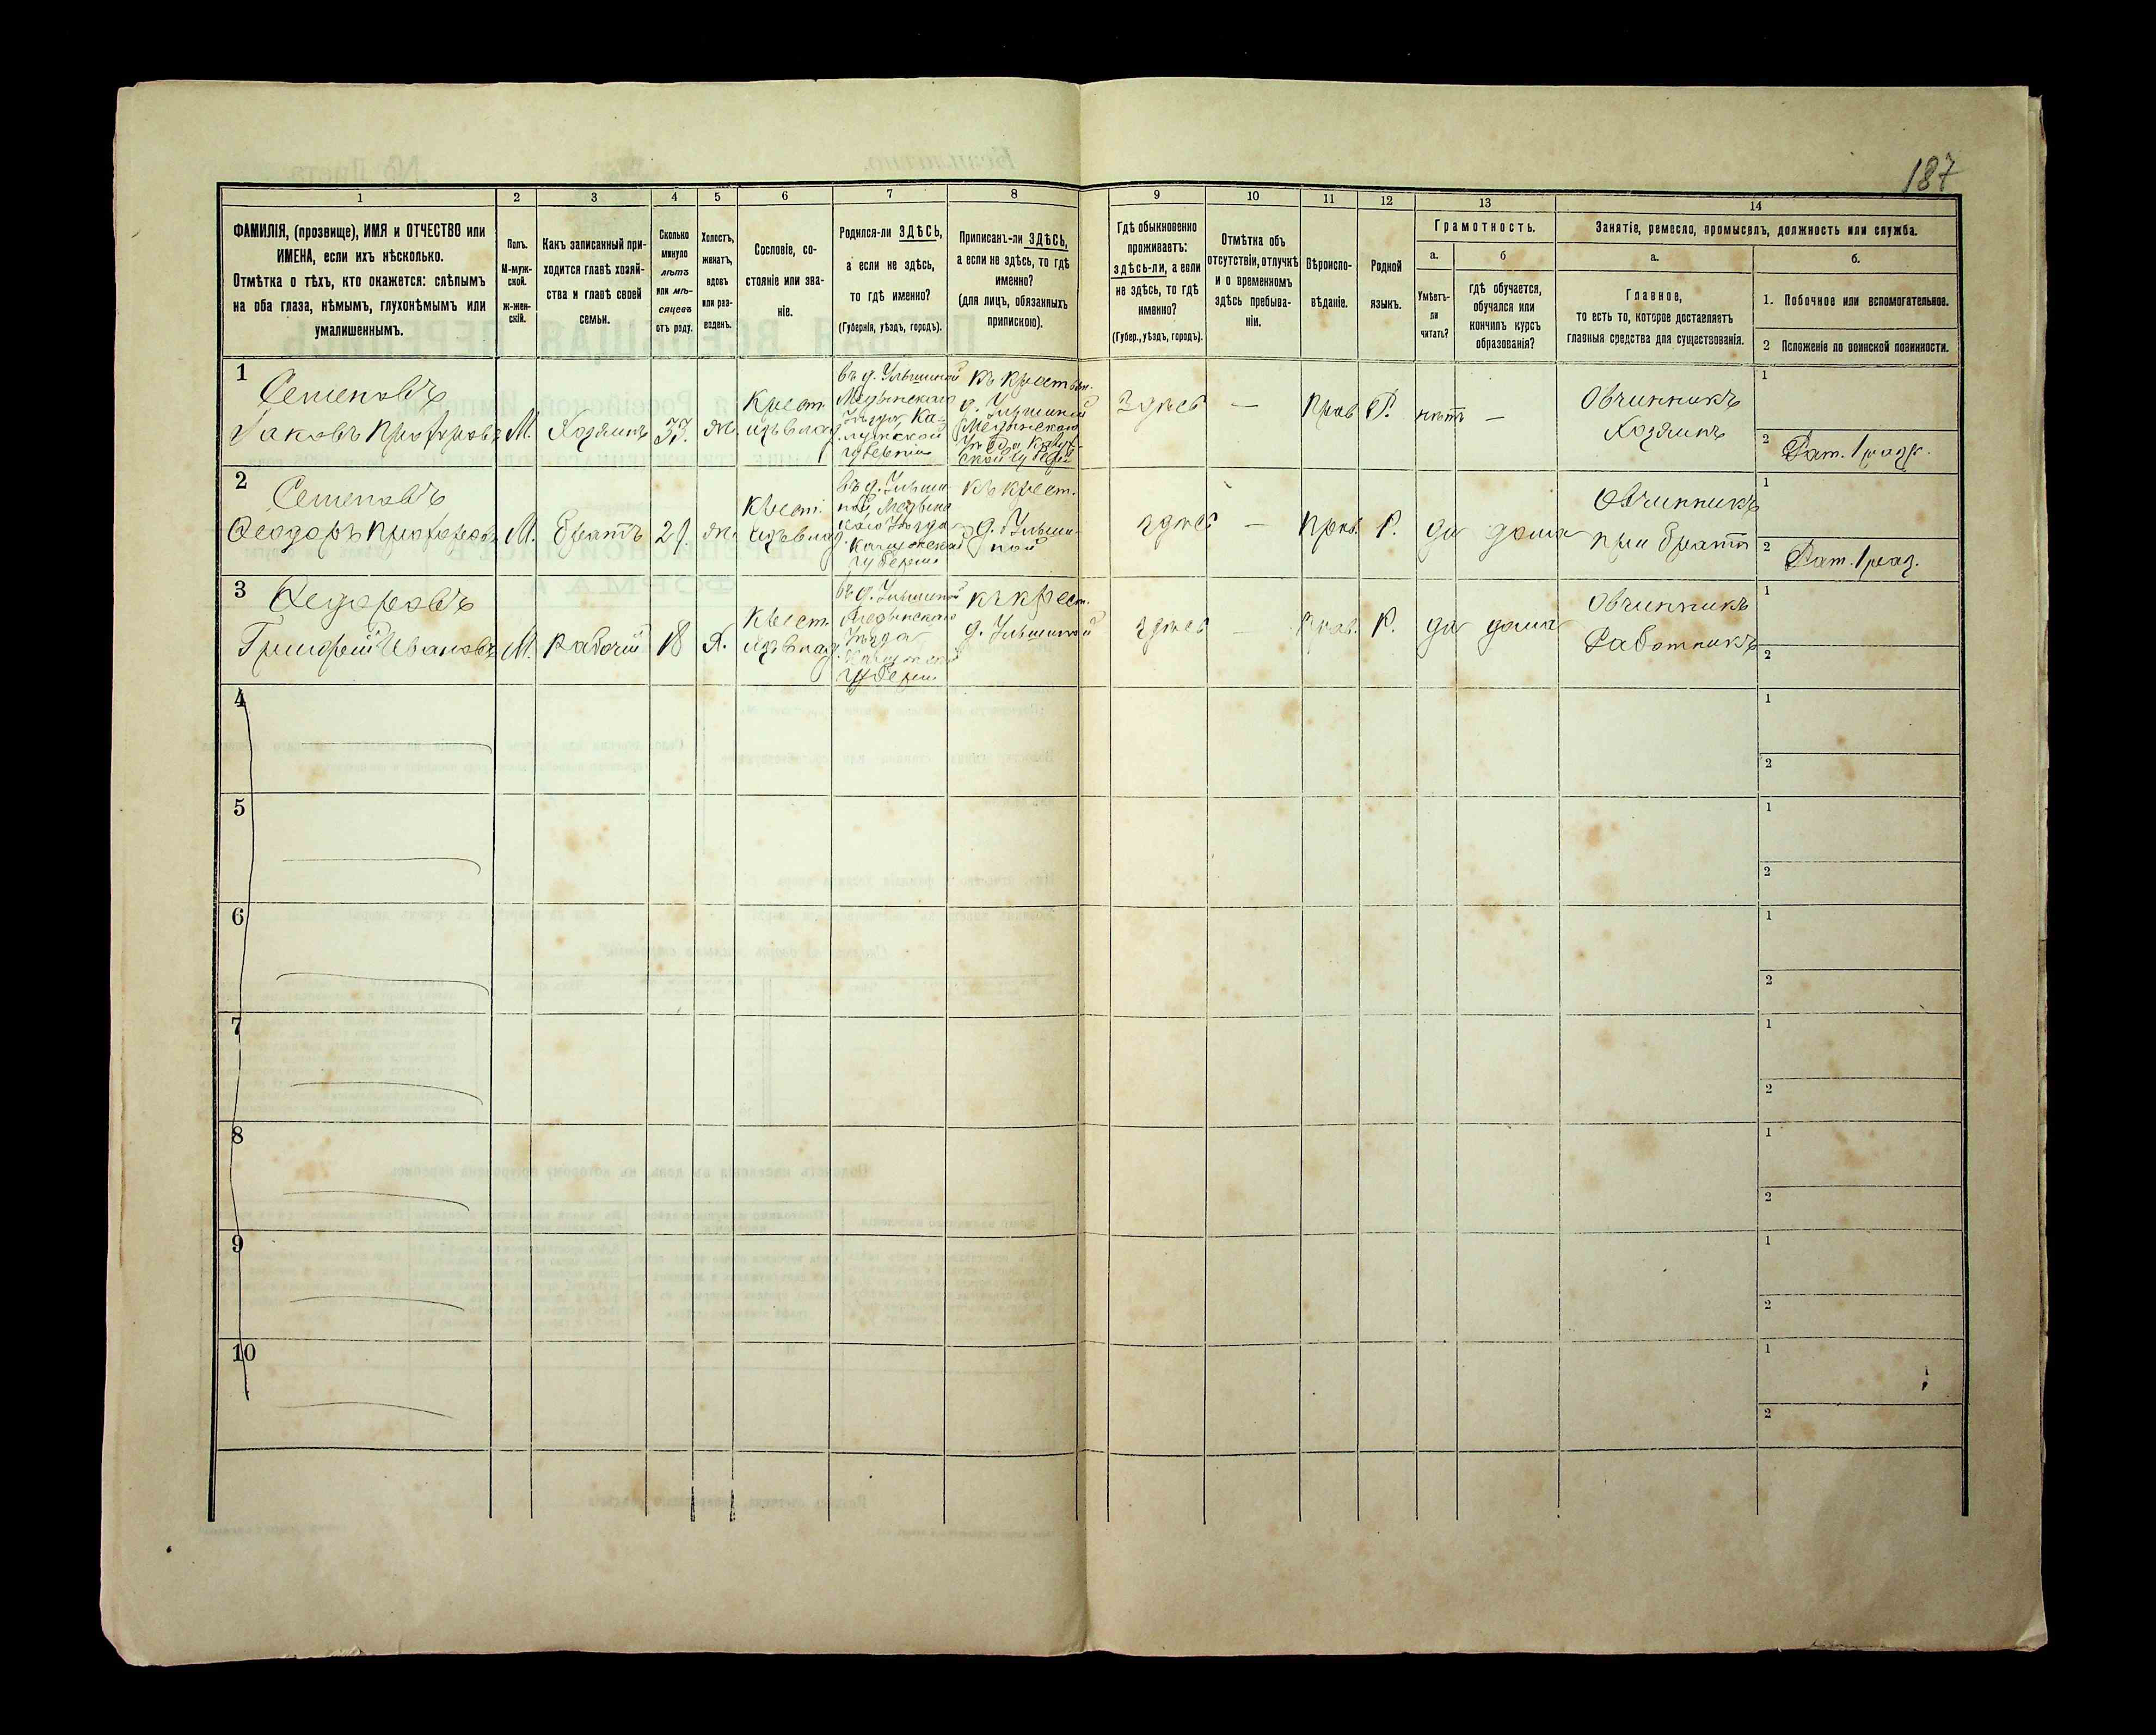 187
1 2 3 4 5 6 7 8 9 10 11 12 13 14
ФАМИЛІЯ, (прозвище), ИМЯ и ОТЧЕСТВО или
ИМЕНА, если ихъ нѣсколько.
Отмѣтка о тѣхъ, кто окажется: слѣпымъ
на оба глаза, нѣмымъ, глухонѣмымъ или
умалишеннымъ.
Полъ.
М-муж-
ской.
ж-жен-
скій.
Какъ записанный при-
ходится главѣ хозяй-
ства и главѣ своей
семьи.
Сколько
минуло
лѣтъ
или мѣ-
сяцевъ
отъ роду.
Холостъ,
женатъ,
вдовъ
или раз-
веденъ.
Сословіе, со-
стояніе или зва-
ніе.
Родился-ли ЗДѢСЬ,
а если не здѣсь,
то гдѣ именно?
(Губернія, уѣздъ, городъ).
Приписанъ-ли ЗДѢСЬ,
а если не здѣсь, то гдѣ
именно?
(для лицъ, обязанныхъ
припискою).
Гдѣ обыкновенно
проживаетъ:
здѣсь-ли, а если
не здѣсь, то гдѣ
именно?
(Губер., уѣздъ, городъ).
Отмѣтка объ
отсутствіи, отлучкѣ
и о временномъ
здѣсь пребыва-
ніи.
Вѣроиспо-
вѣданіе.
Родной
языкъ.
Грамотность.
а.
Умѣетъ-
ли
читать?
б
гдѣ обучается,
обучался или
кончилъ курсъ
образованія?
Занятіе, ремесло, промыселъ, должность или служба.
а.
Главное,
то есть то, которое доставляетъ
главныя средства для существованія.
б.
1. Побочное или вспомогательное.
2 Положеніе по воинской повинности.
1
Семеновъ
Яковъ Прохоровъ
М.
Хозяинъ
33.
ж.
Крест.
изъ влад.
въ д. Ульшиной
Медынскаго
Уѣзда, Ка-
лужской
губерніи
къ крестьян.
д. Ульшиной
Медынскаго
Уѣзда Калуж-
ской губерніи
Здѣсь
—
прав
Р.
нѣтъ
—
Овчинникъ
Хозяинъ
1
2 Рат. 1 разр.
2
Семеновъ
Ѳеодоръ Прохоровъ
М.
Братъ
29.
ж.
Крест.
изъ влад.
въ д. Ульши-
ной, Медынс
каго Уѣзда
Калужской
губерніи
къ крест.
д. Ульши-
ной
здѣсь
—
прав.
Р.
да
дома
Овчинникъ
при братѣ
1
2 Рат. 1 раз.
3
Ѳедоровъ
Григорій Ивановъ
М.
рабочій
18
Х.
Крест
изъ влад.
въ д. Ульшиной
Медынскаго
Уѣзда
Калужской
губерніи
къ крест.
д. Ульшиной
здѣсь
—
прав.
Р.
да
дома
Овчинникъ
Работникъ
1
2
4
1
2
5
1
2
6
1
2
7
1
2
8
1
2
9
1
2
10
1
2